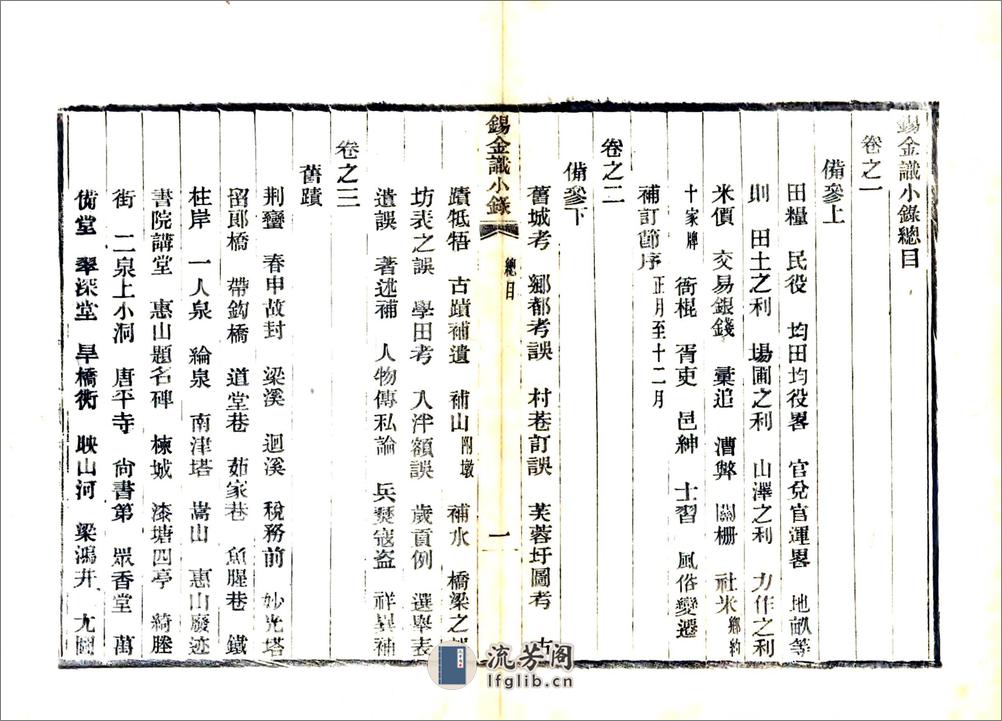 錫金識小錄總目
卷之一
備參上
田糧　民役　均田均役畧　官兌官運畧　地畝等
則　田土之利　場圃之利　山澤之利　力作之利
米價　交易銀錢　彙追　漕弊　關柵　社米　鄉約
十家牌　衙棍　胥吏　邑紳　士習　風俗變遷
補訂節序　正月至十二月
卷之二
備參下
舊城考　鄉都考誤　村巷訂誤　芙蓉圩圖考　古
錫金識小錄　總目　一
蹟牴牾　古蹟補遺　補山　附墩　補水　橋梁之
坊表之誤　學田考　入泮額誤　歲貢例　選舉表
遺誤　著述補　人物傳私論　兵燹寇盜　祥異補
卷之三
舊蹟
荆蠻　春申故封　梁溪　迴溪　稅務前　妙光塔
留郎橋　帶鈎橋　道堂巷　茹家巷　魚腥巷　鐵
柱岸　一人泉　綸泉　南津塔　嵩山　惠山廢迹
書院講堂　惠山題名碑　楝城　漆塘四亭　綺塍
街　二泉上小洞　唐平寺　尙書第　眾香堂　萬
備堂　翠深堂　旱橋街　映山河　梁鴻井　尤圖
流芳閣
lfglib.cn